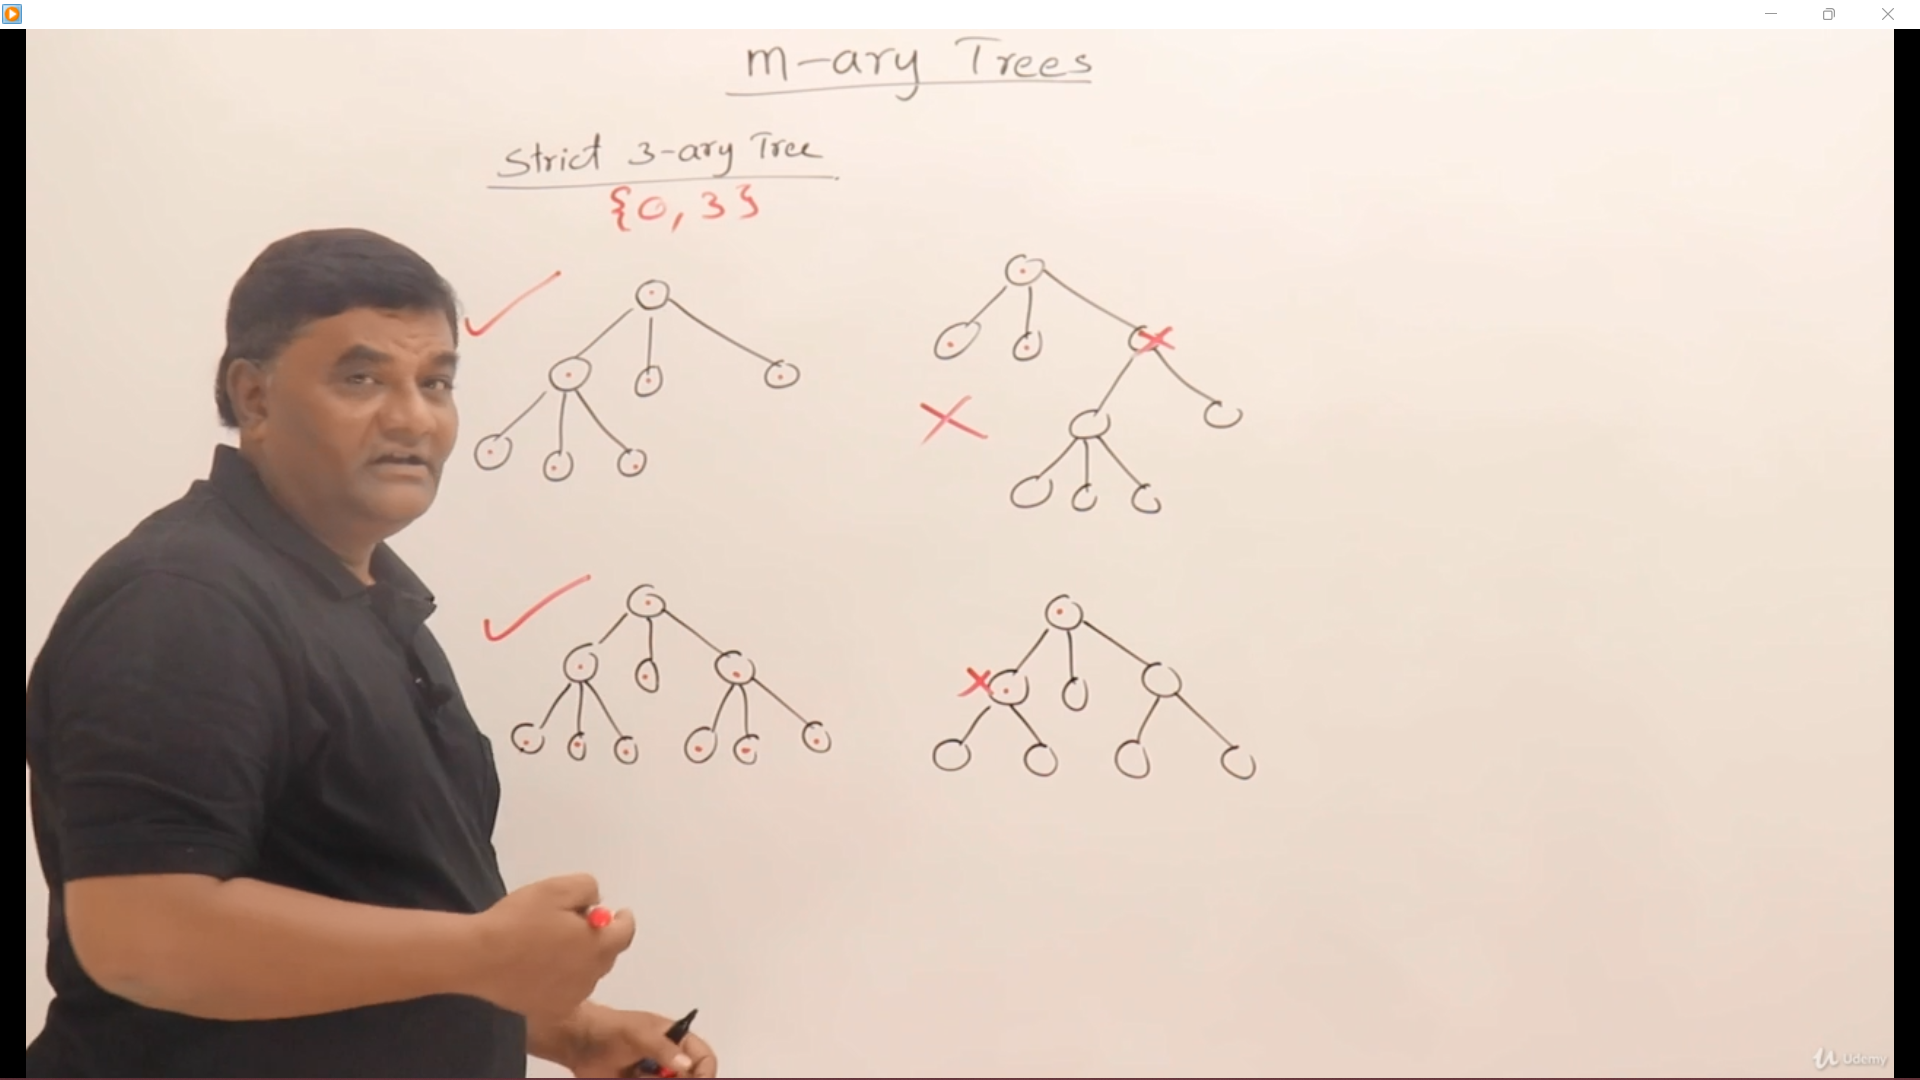 m-ary Trees
Strict 3-ary Tree
{0,3}
Udemy